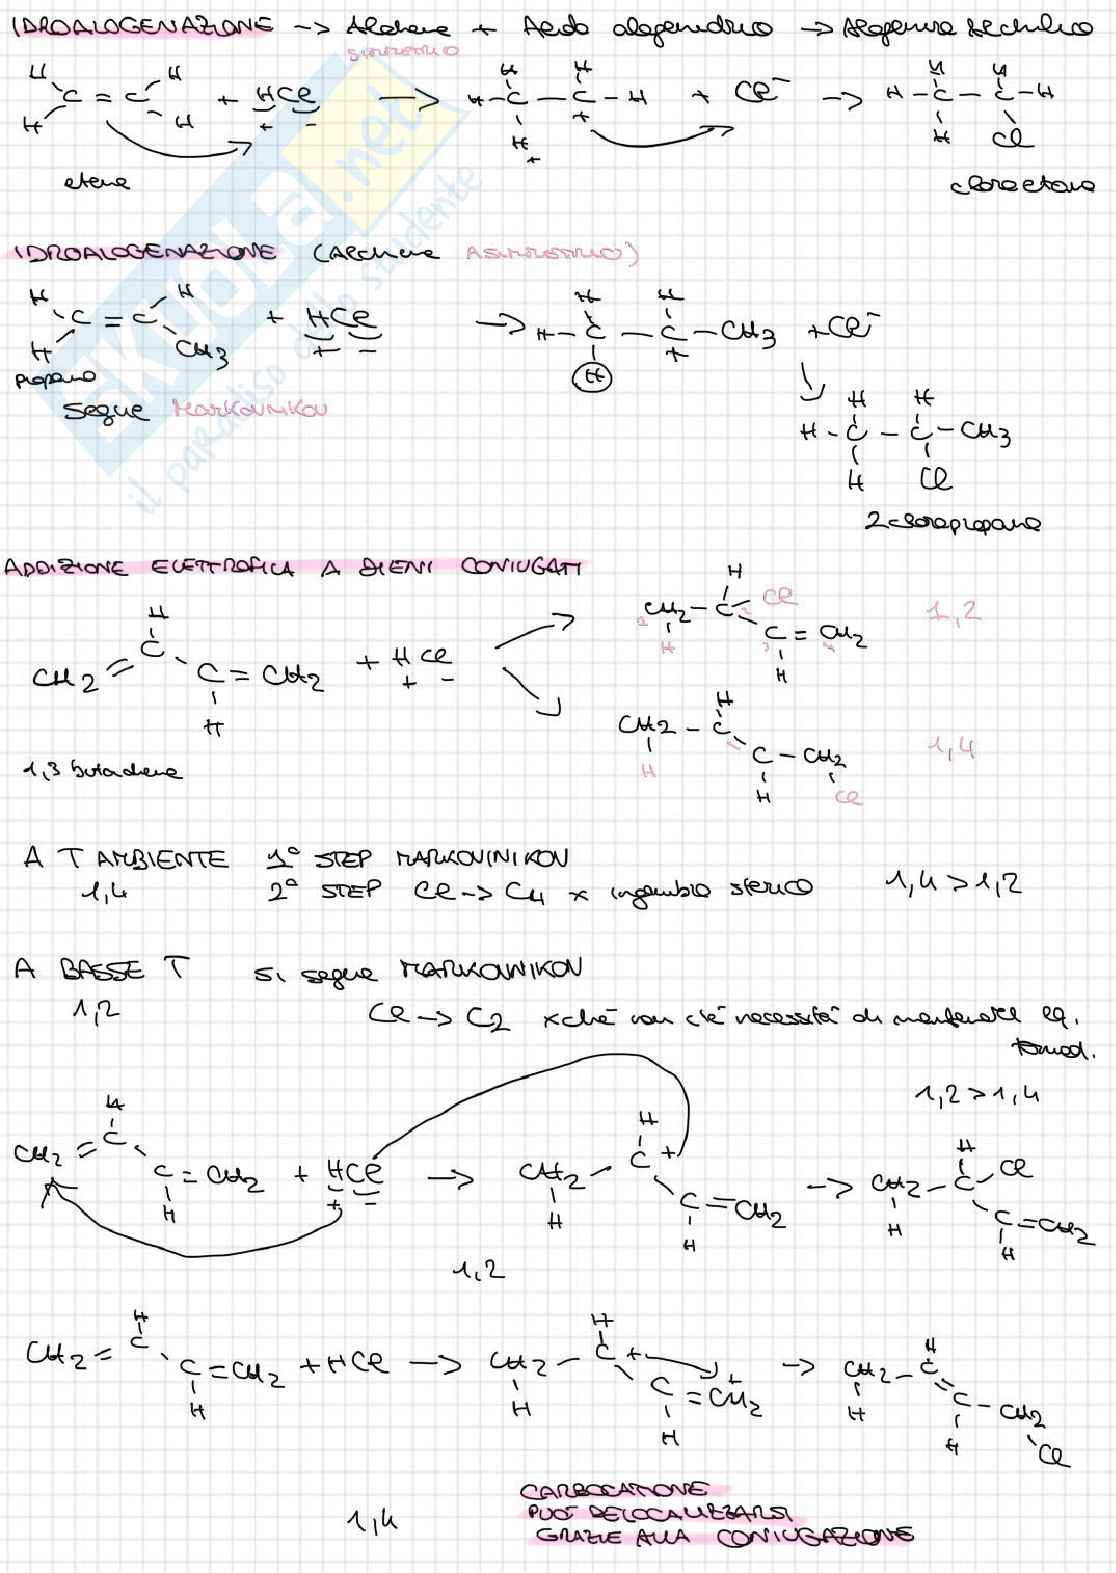 IDROALOGENAZIONE -> Alchene + Acido alogenidrico -> Alogenuro Alchilico
SIMMETRICO
H H H H H H
C = C + HCl -> H - C - C - H + Cl⁻ -> H - C - C - H
H H + - H + H Cl
+
etene cloroetano
IDROALOGENAZIONE (Alchene ASIMMETRICO)
H H H H
C = C + HCl -> H - C - C - CH3 + Cl⁻
H CH3 + - H +
propano
segue MARKOVNIKOV
H H
H - C - C - CH3
H Cl
2cloropropano
ADDIZIONE ELETTROFILA A DIENI CONIUGATI
H
CH2 - C - Cl 1,2
H C = CH2
H
H
CH2 = C
C = CH2 + HCl
H + -
H
CH2 - C 1,4
H C - CH2
H Cl
1,3 butadiene
A T AMBIENTE 1° STEP MARKOVINIKOV
1,4 2° STEP Cl -> C4 x ingombro sterico 1,4 > 1,2
A BASSE T si segue MARKOVNIKOV
1,2 Cl -> C2 xché non c'è necessità di mantenere eq.
termod.
1,2 > 1,4
H H H
CH2 = C CH2 - C + CH2 - C - Cl
C = CH2 + HCl -> H C = CH2 -> H C = CH2
H + - H H
1,2
H H H
CH2 = C CH2 - C + CH2 - C
C = CH2 + HCl -> H C = CH2 + -> H C - CH2
H H H Cl
1,4
CARBOCATIONE
PUO' DELOCALIZZARSI
GRAZIE ALLA CONIUGAZIONE
skuola.net
il paradiso dello studente